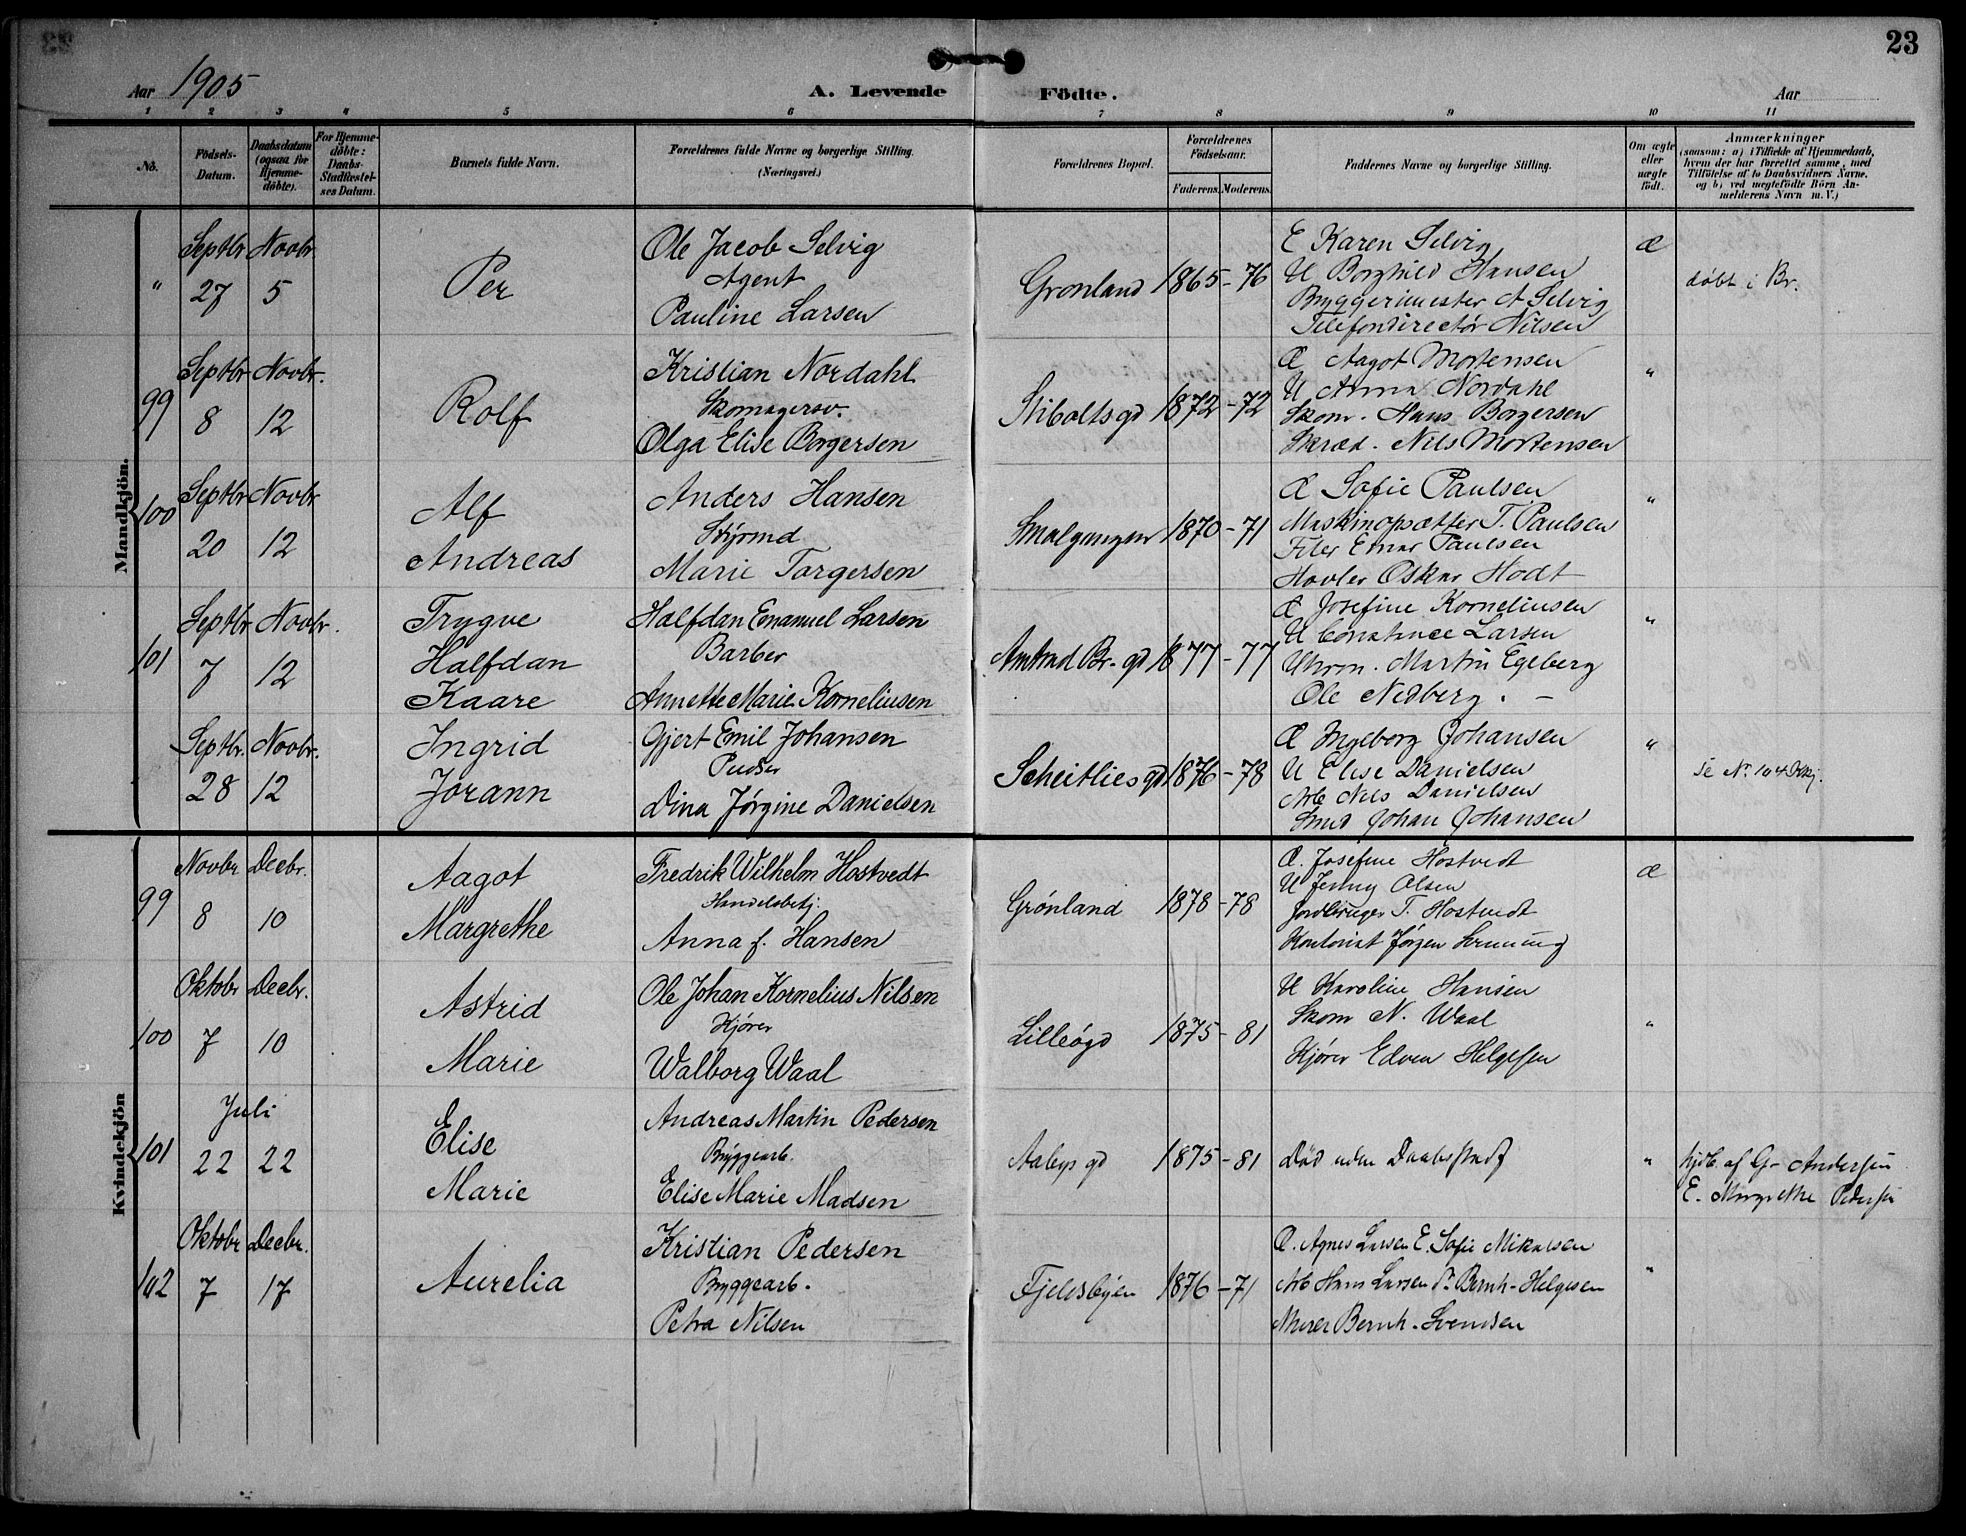 23
Aar 1905
A. Levende Födte.
Aar
1 2 3 4 5 6 7 8 9 10 11
No.
Födsels-Datum.
Daabsdatum (ogsaa for Hjemmedöbte).
For Hjemmedöbte: Daabs-Stadfæstelses Datum.
Barnets fulde Navn.
Forældrenes fulde Navne og borgerlige Stilling. (Næringsvei.)
Forældrenes Bopæl.
Forældrenes Födselsaar.
Faderens. Moderens.
Faddernes Navne og borgerlige Stilling.
Om ægte eller uægte födt.
Anmærkninger
(saasom: a) i Tilfælde af Hjemmedaab, hvem der har forrettet samme, med Tilföielse af to Daabsvidners Navne, og b) ved uægtefödte Börn Anmelderens Navn m. V.)
Mandkjön.
" Septbr 27 Novbr 5
Per
Ole Jacob Selvig
Agent
Pauline Larsen
Grønland 1865 - 76
E Karen Selvig
U Borghild Hansen
Bryggerimester A Selvig
Telefondirectör Nilsen
Æ
døbt i Br.
99 Septbr 8 Novbr. 12
Rolf
Kristian Nordahl
Skomagersv.
Olga Elise Borgersen
Stiboltsgd 1872 - 72
Æ Aagot Mortensen
U Anna Nordahl
Skom. Hans Borgersen
Skræd. Nils Mortensen
"
100 Septbr 20 Novbr 12
Alf
Andreas
Anders Hansen
Styrmd
Marie Torgersen
Smalgangen 1870 - 71
Æ Sofie Paulsen
Maskinopsætter T. Paulsen
Filer Einar Paulsen
Høvler Oskar Hodt
"
101 Septbr 7 Novbr. 12
Trygve
Halfdan
Kaare
Halfdan Emanuel Larsen
Barber
Annette Marie Korneliusen
Amtmd Br. gd 1877 - 77
Æ Josefine Korneliusen
U Constance Larsen
Uhrm. Martin Egeberg
Ole Nedberg. -
"
Septbr. 28 Novbr. 12
Ingrid
Jorann
Gjert Emil Johansen
Pudser
Dina Jørgine Danielsen
Scheitliesgd 1876 - 78
Æ Ingeborg Johansen
U Elise Danielsen
Arb Nils Danielsen
Smed Johan Johansen
"
se No. 104 Kvkj.
Kvindekjön
99 Novbr 8 Decbr. 10
Aagot
Margrethe
Fredrik Wilhelm Hostvedt
Handelsbetj.
Anna f. Hansen
Grønland 1878 - 78
Æ. Josefine Hostvedt
U Jenny Olsen
Jordbruger T. Hostvedt
Kontorist Jørgen
Æ
100 Oktobr 7 Decbr. 10
Astrid
Marie
Ole Johan Kornelius Nilsen
Kjører
Walborg Waal
Lilleøgd 1875 - 81
U Karoline Hansen
Skom N. Waal
Kjører Edvin Helgesen
"
101 Juli 22 22
Elise
Marie
Andreas Martin Pedersen
Byggearb.
Elise Marie Madsen
Aabys gd 1875 - 81
Død uden Daabsstadf
"
hjdb. af G- Andersen
E. Margrethe Pedersen
102 Oktobr 7 Decbr. 17
Aurelia
Kristian Pedersen
Byggearb.
Petra Nilsen
Fjeldsbyen 1876 - 71
Æ. Agnes Larsen E. Sofie Mikalsen
Arb Hans Larsen do Bernh. Helgesen
Murer Bernh. Svendsen
"